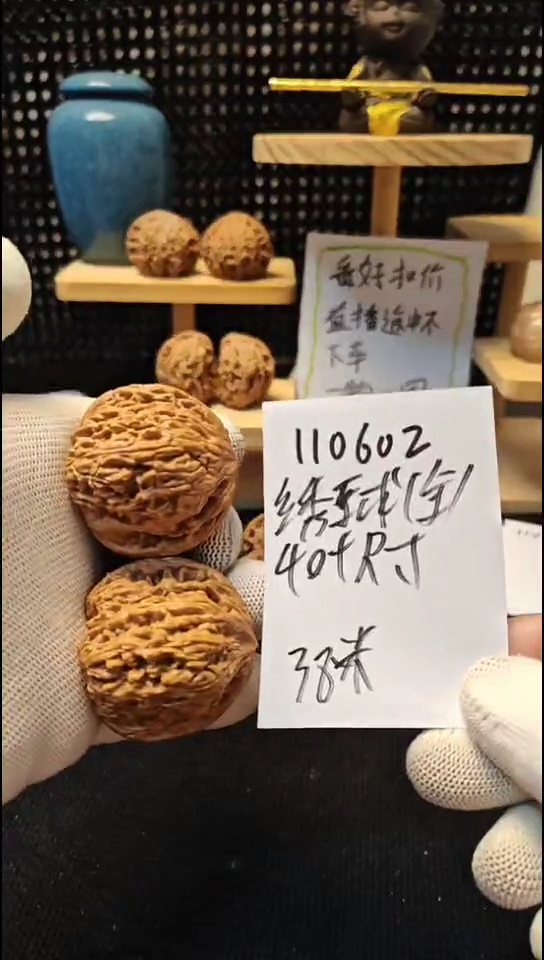 盘好扣价
直播途中不
下车
110602
绣球(全)
40+尺寸
38米